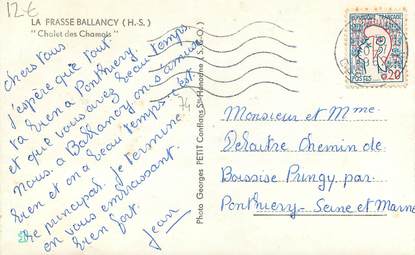 12€
LA FRASSE BALLANCY (H.-S.)
"Chalet des Chamois"
Chers tous
J'espère que tout
va bien a Ponthierry.
et que vous avez beau temps
nous. a Ballancy on s'amuse
bien et on a beau temps. c'est
le principal. Je termine
en vous embrassant
bien fort.
Jean
74
Photo Georges PETIT Conflans St-Honorine (S.-&-O.)
REPUBLIQUE FRANÇAISE
0,20
POSTES
Monsieur et Mme
Delaitre Chemin de
Boissise Pringy par
Ponthierry - Seine et Marne